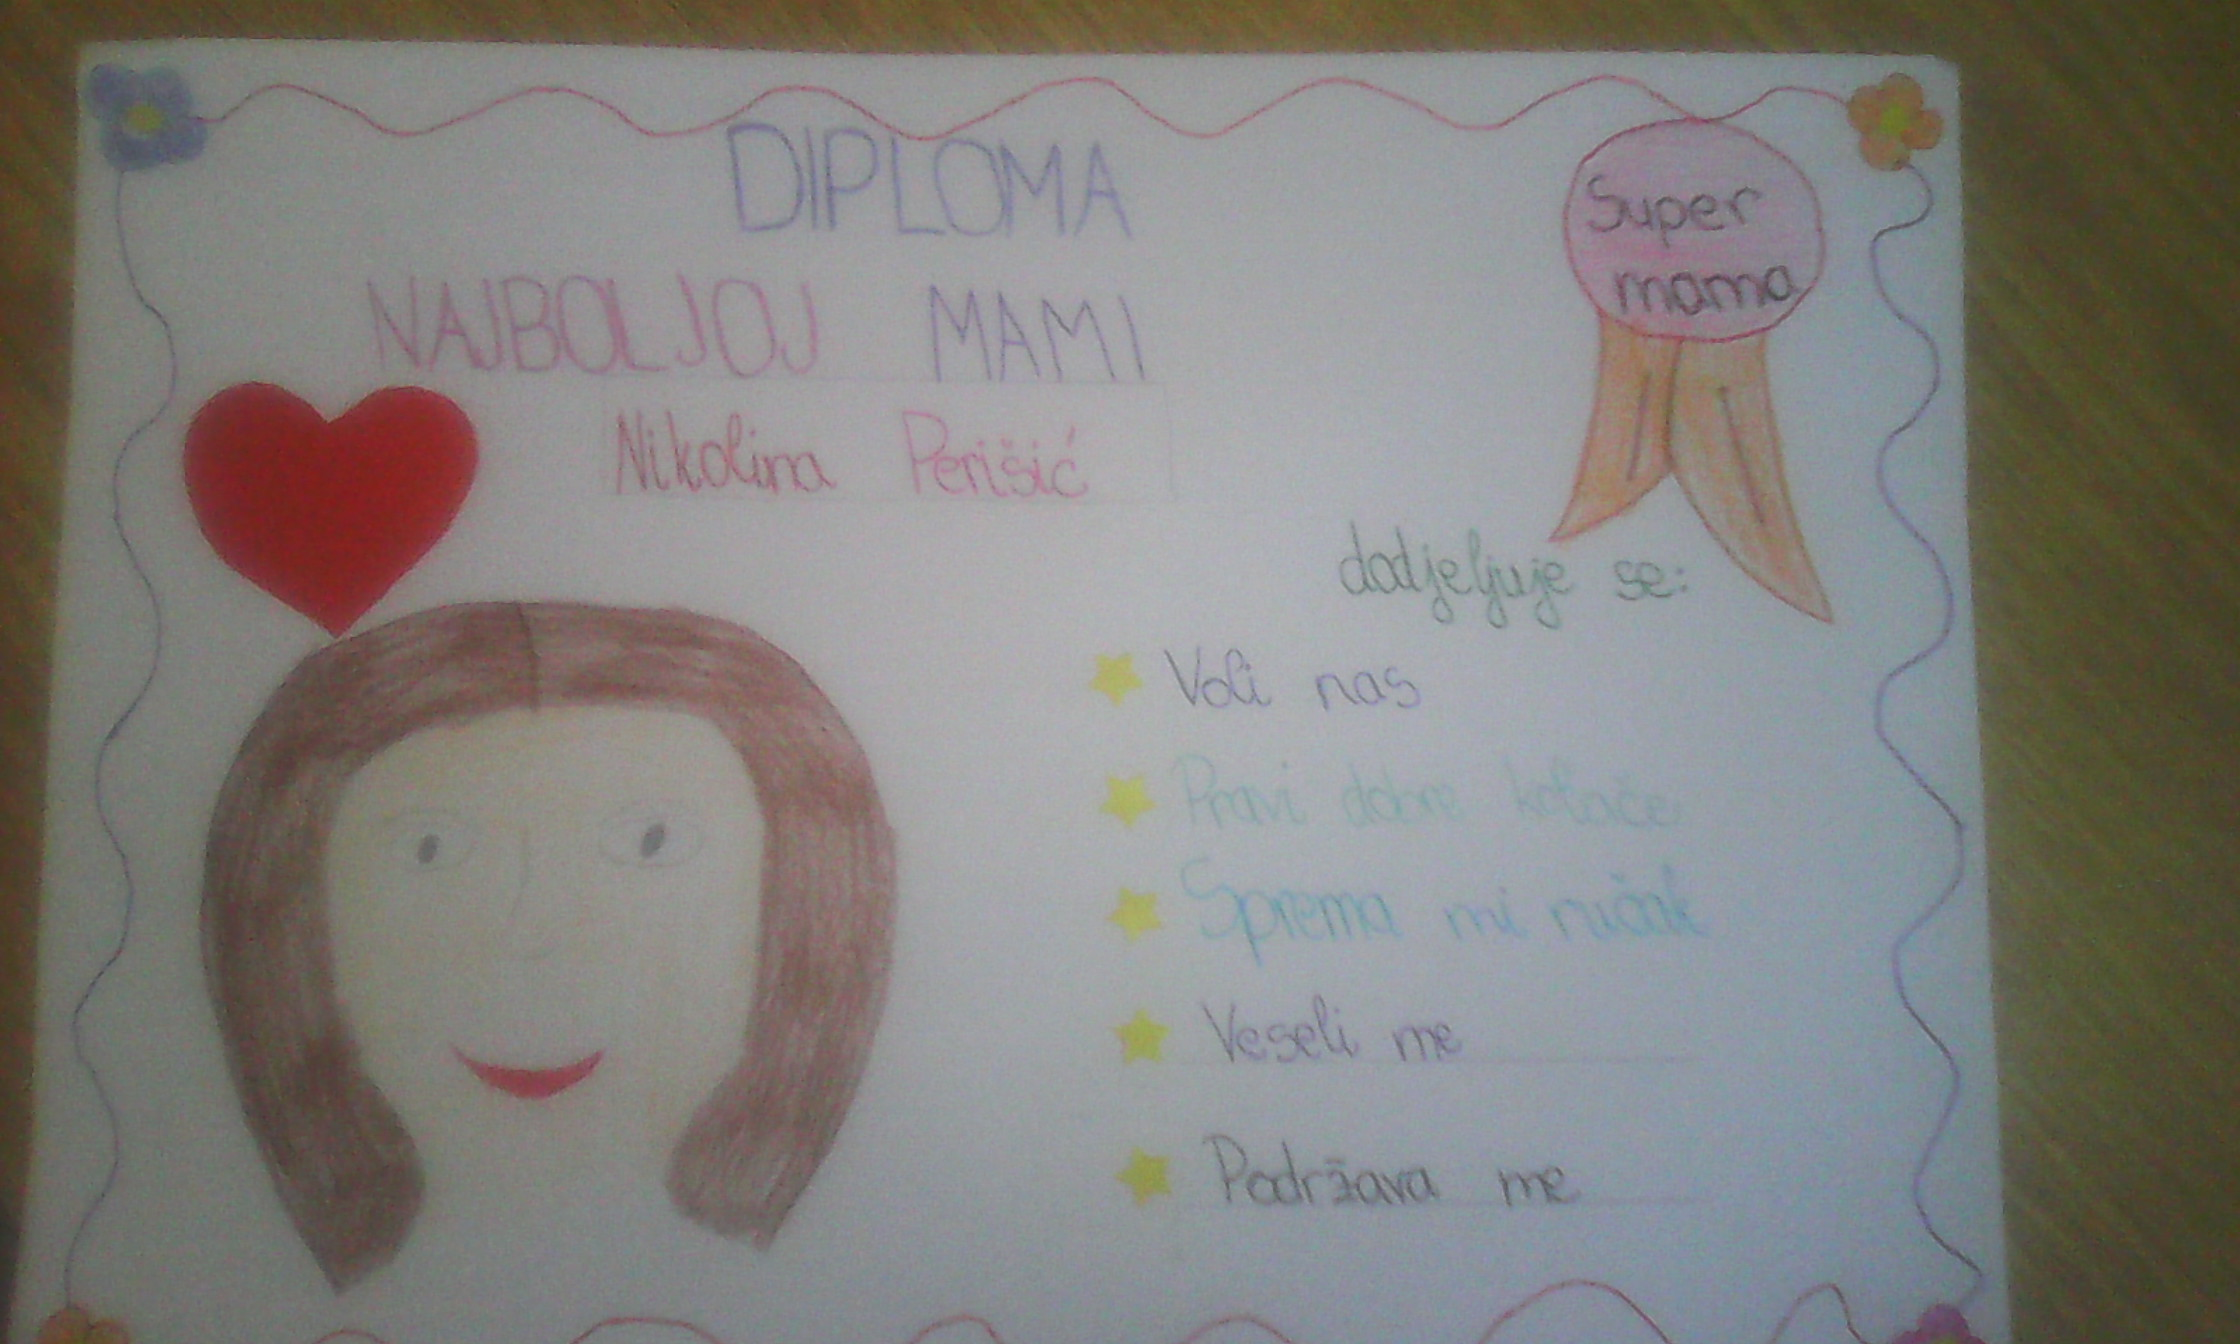 DIPLOMA
Super
mama
NAJBOLJOJ MAMI
Nikolina Perišić
dodjeljuje se:
Voli nas
Pravi dobre kolače
Sprema mi ručak
Veseli me
Podržava me